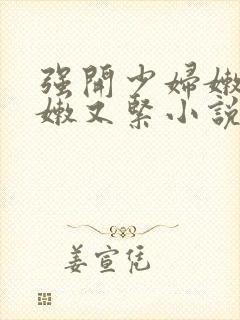 强開少婦嫩
嫩又緊小說
姜宣凭